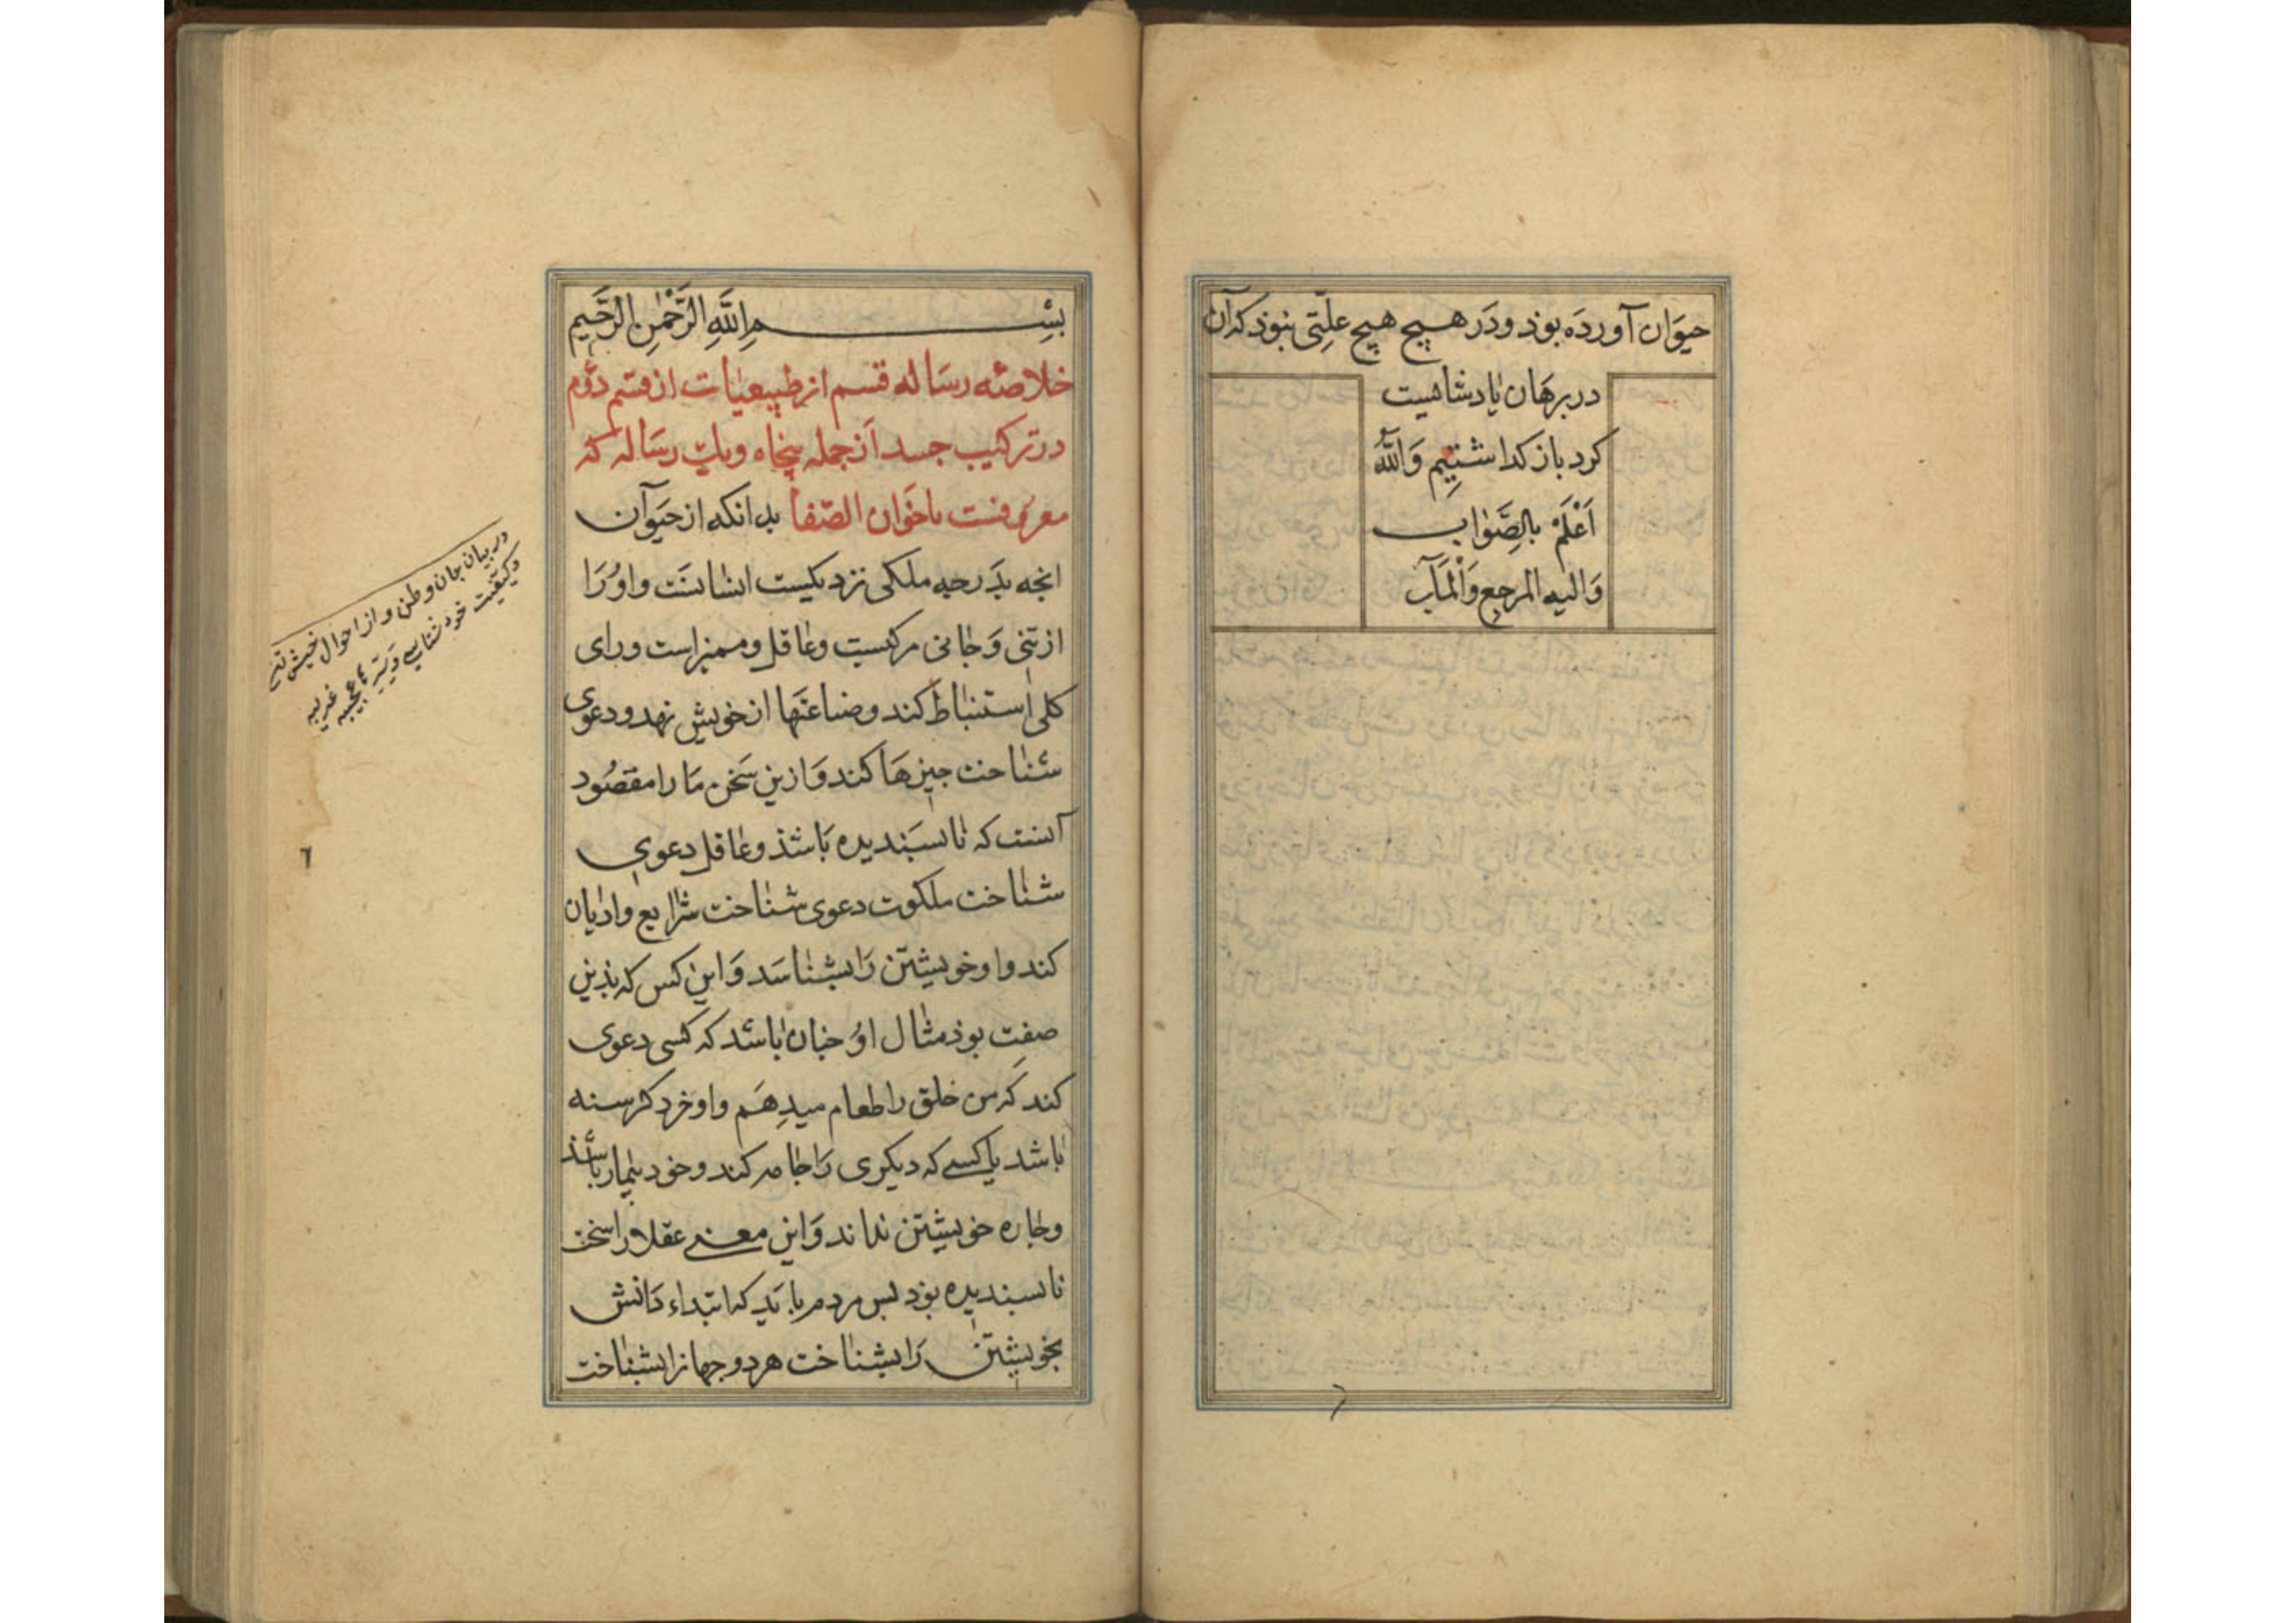 حیوَان آورده بوذ ودَر هیچ هیچ علتی نبوذ که آن
در برهَان پادشاهیت
کرد باز کداشتیم وَاللّٰه
اَعْلَمُ بالصَّوَاب
وَالیه المرجع وَالْمَآب
بِسْمِ اللَّهِ الرَّحْمٰنِ الرَّحِیمِ
خلاصهٔ رسَاله قسم از طبیعیات از قسم دوّم
در ترکیب جسد اَز جمله پنجاه ویك رسَاله که
معروفست باخَوان الصّفا بدانکه از حیَوان
انجه بدَرجه ملکی نزدیکست انسانسَت واوُرَا
از تنی وَجانی مرکبست وعاقل وممیز است ورای
کلی استنباط کند وصناعتَها از خویش نهد ودعوی
شناخت جیزهَا کند وَازین سَخن مَا را مقصُود
آنست که ناپسَندیده بَاشذ وعاقل دعوی
شناخت ملکوت دعوی شناخت شرایع وادیان
کند واو خویشتن رَا بشناسَد وَاین کس که بذین
صفت بوذ مثال اوُ جنان باشد که کسی دعوی
کند که من خلق را طعام میدِهَم واو خرد کرسنه
باشد یا کسے که دیکری رَا جامه کند وخود بیمار باشذ
وجاره خویشتن نداند وَاین معنے عقلا را سخت
ناپسندیده بوَد بس مردم بایَد که ابتداء دَانش
بخویشتن رَا بشناخت هر دو جهانرا بشناخت
در بیان جان و طن و از احوال خیش
وکیفیت خود شناسے